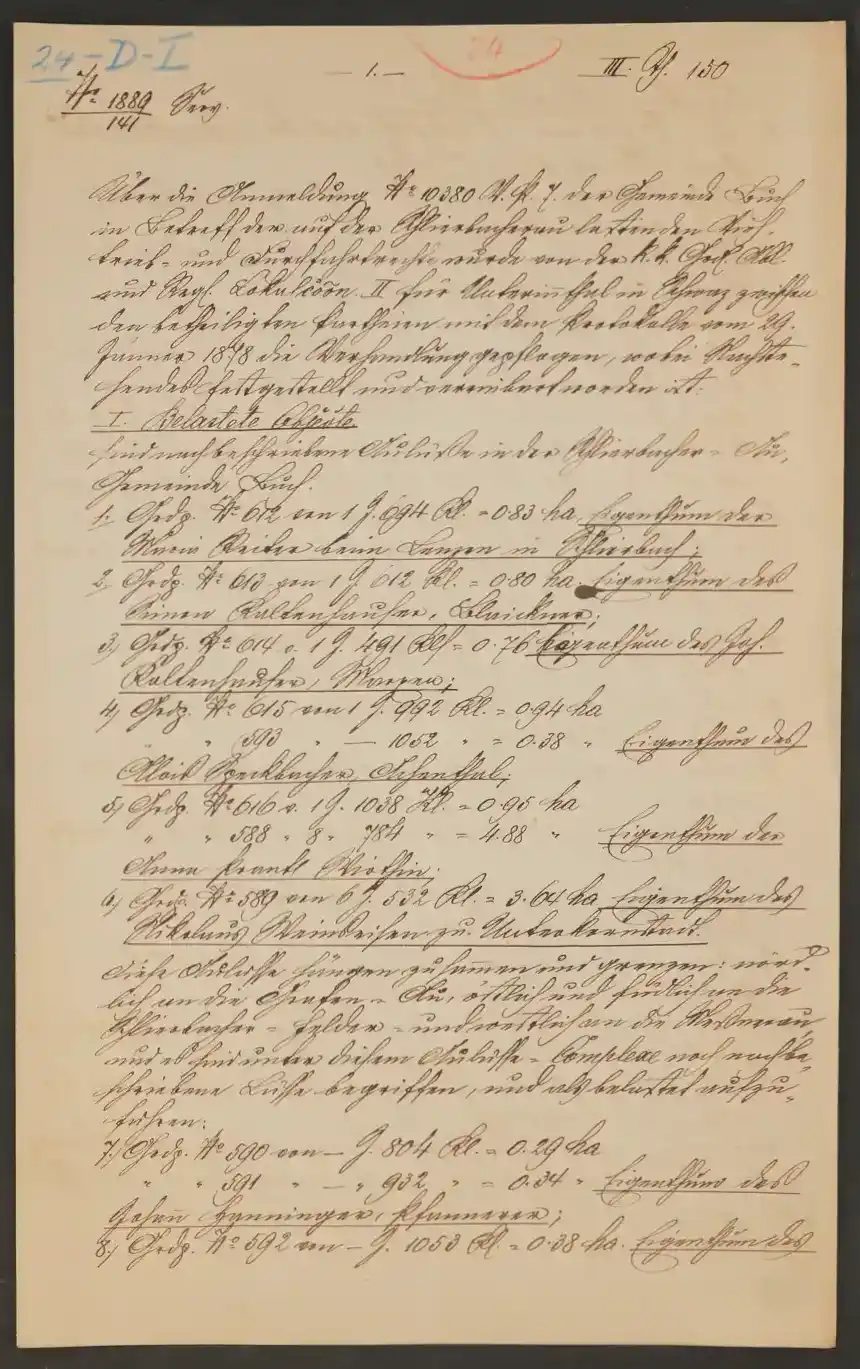 24-D-I
24
- 1. -
III. Th. 150
No 1889/141 Serv.
Über die Anmeldung No 10380 der Gemeinde Buch
in Betreff der auf der Schlierbacherau lastenden Vieh-
trieb- und Durchfahrtrechte wurde von der k. k. Grd. Abl.
und Regl. Lokalcoon. II für Unterinnthal in Schwaz zwischen
den betheiligten Partheien mit dem Protokolle vom 29.
Jänner 1878 die Verhandlung gepflogen, wobei Nachste-
hendes festgestellt und vereinbart worden ist:
I. Belastete Objekte
sind nachbeschriebene Aulüße in der Schlierbacher-Au,
Gemeinde Buch.
1. Grdp. No 612 von 1 J. 694 Kl. = 0.83 ha, Eigenthum der
Maria Reiter beim Lenzen in Schlierbach;
2, Grdp. No 613 von 1 J. 612 Kl. = 0.80 ha. Eigenthum des
Simon Kaltenhauser,
3, Grdp. No 614 v. 1 J. 491 Kl = 0.76 Eigenthum des Joh.
Kaltenhauser,
4, Grdp. No 615 von 1 J. 992 Kl. = 0.94 ha
" " 593 " — 1052 " = 0.38 " Eigenthum des
Alois Speckbacher, Achenthal;
5, Grdp. No 616 v. 1 J. 1038 Kl. = 0.95 ha
" " 588 " 8 " 784 " = 4.88 " Eigenthum der
Anna Prantl Wirthin;
6, Grdp. No 589 von 6 J. 532 Kl. = 3.64 ha Eigenthum des
Nikolaus zu
Diese Aulüsse hängen zusammen und grenzen: nörd-
lich an die Grafen-Au, östlich und südlich an die
Schlierbacher-Felder- und westlich an die
und es sind unter diesem Aulüsse-Complexe noch nachbe-
schriebene Lüsse begriffen, und als belastet aufzu-
führen:
7.) Grdp. No 590 von — J. 804 Kl. = 0.29 ha
" " 591 " — " 932 " = 0.34 " Eigenthum des
Johann
8.) Grdp. No 592 von — J. 1053 Kl. = 0.38 ha. Eigenthum des